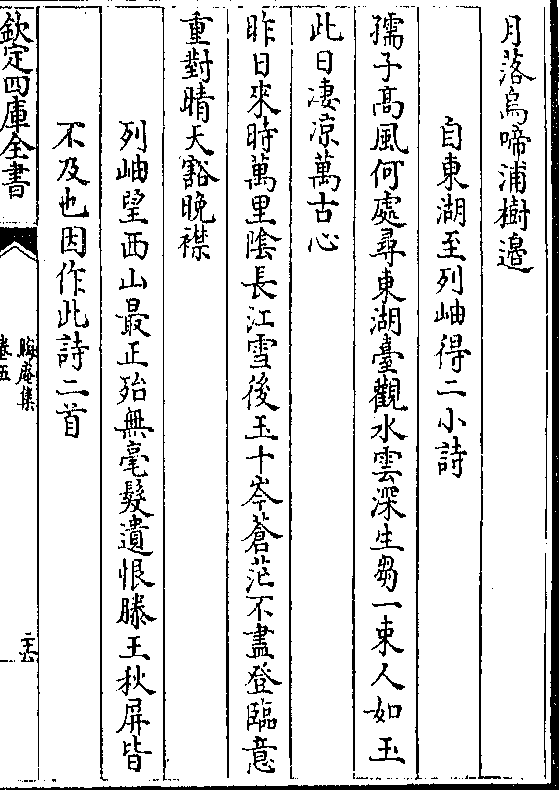 月落烏啼浦樹邉
自東湖至列岫得二小詩
孺子髙風何處尋東湖臺觀水雲深生芻一束人如玉
此日凄涼萬古心
昨日來時萬里隂長江雪後玉十岑蒼茫不盡登臨意
重對晴天豁晚襟
列岫望西山最正殆無毫髮遺恨滕王秋屛皆
不及也因作此詩二首
欽定四庫全書
晦庵集
卷五